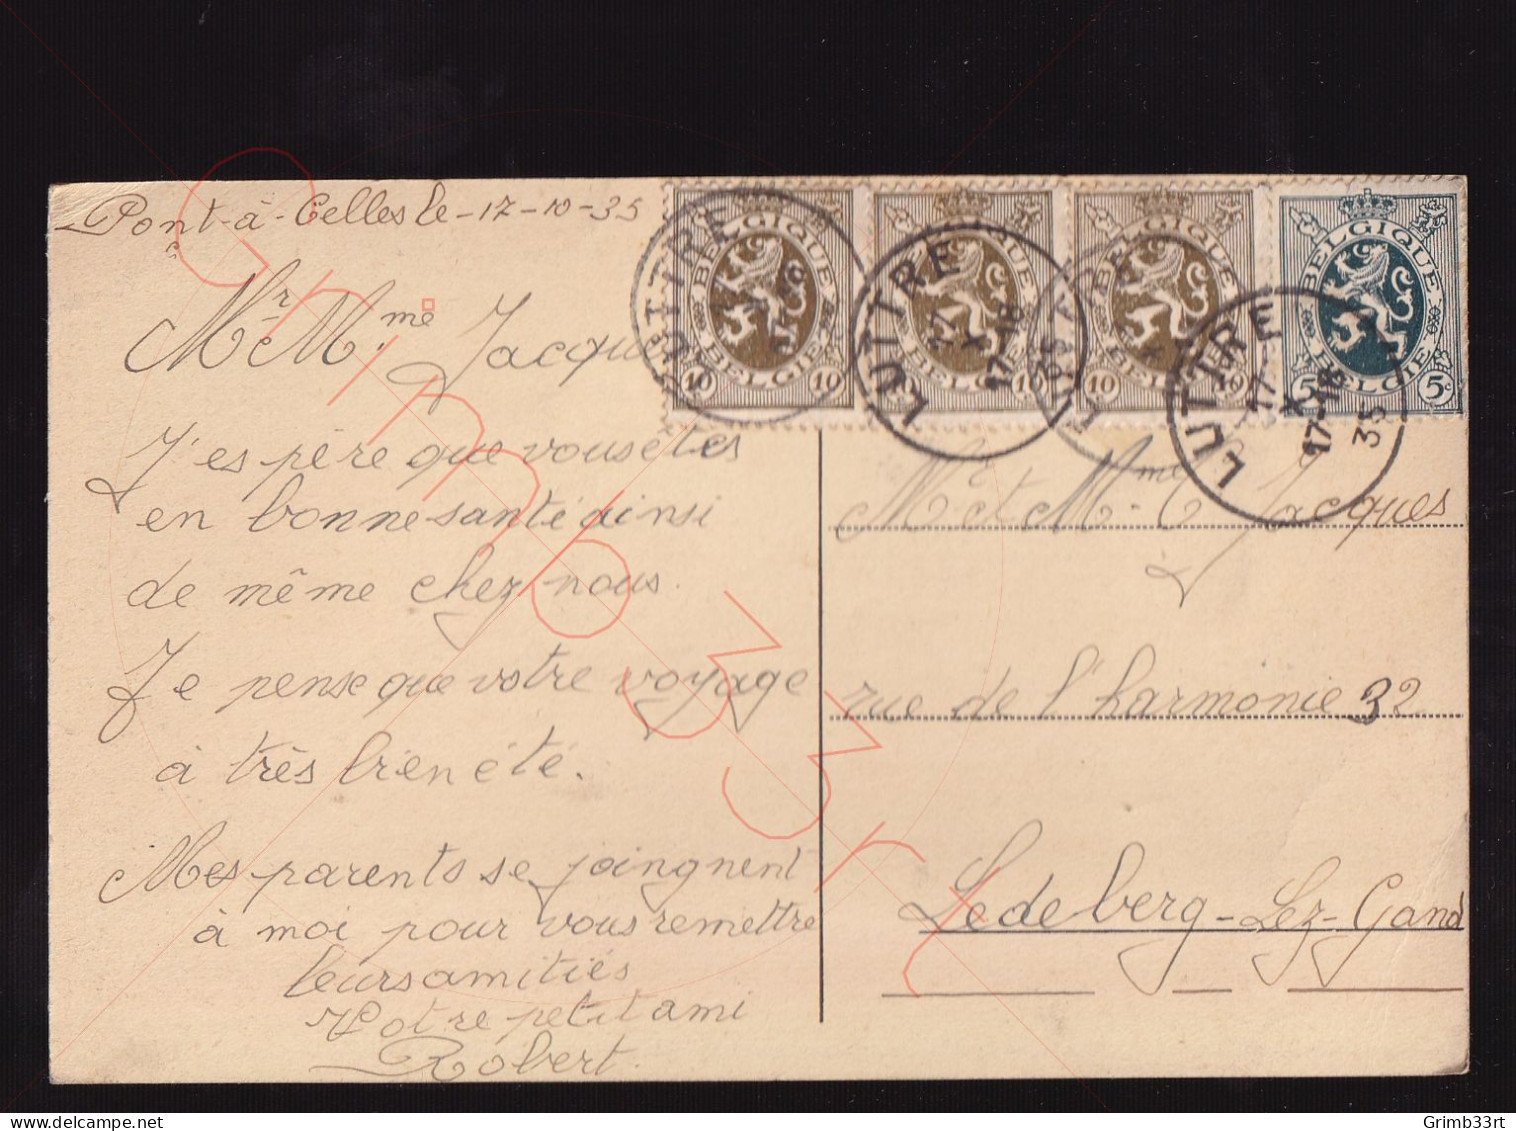 Pont-à-Celles le -17-10-35
Mr Mme Jacques
J'espère que vous etes
en bonne santé ainsi
de même chez nous.
Je pense que votre voyage
à très bien été.
Mes parents se joingnent
à moi pour vous remettre
leurs amitiés
Votre petit ami
Robert.
BELGIQUE
10 BELGIE 10
BELGIQUE
10 BELGIE 10
BELGIQUE
10 BELGIE 10
BELGIQUE
5c BELGIE 5c
LUTTRE
LUTTRE
17
X
17-18
35
LUTTRE
17
X
17-18
35
Mr et Mme Jacques
à
rue de l'harmonie 32
Ledeberg-Lez-Gand
Grimb33rt
Grimb33rt